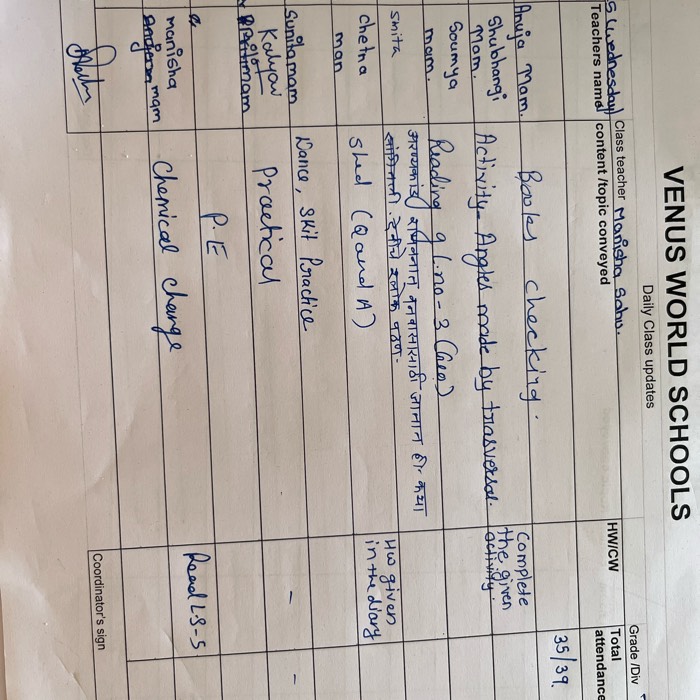 VENUS WORLD SCHOOLS
Daily Class updates
Grade /Div
(wednesday) Class teacher Manisha Sahu.
Teachers name content /topic conveyed HW/CW Total attendance
35/39.
Anuja Mam. Books checking.
Shubhangi Mam. Activity- Angles made by transversal. Complete the given activity.
Soumya mam. Reading of L.no-3 (Geo)
smita
chetna mam shed (Q and A) HW given in the diary
Sunita mam Dance, Skit Practice - -
Practical
P.E
manisha mam chemical change Read L8-5
Coordinator's sign